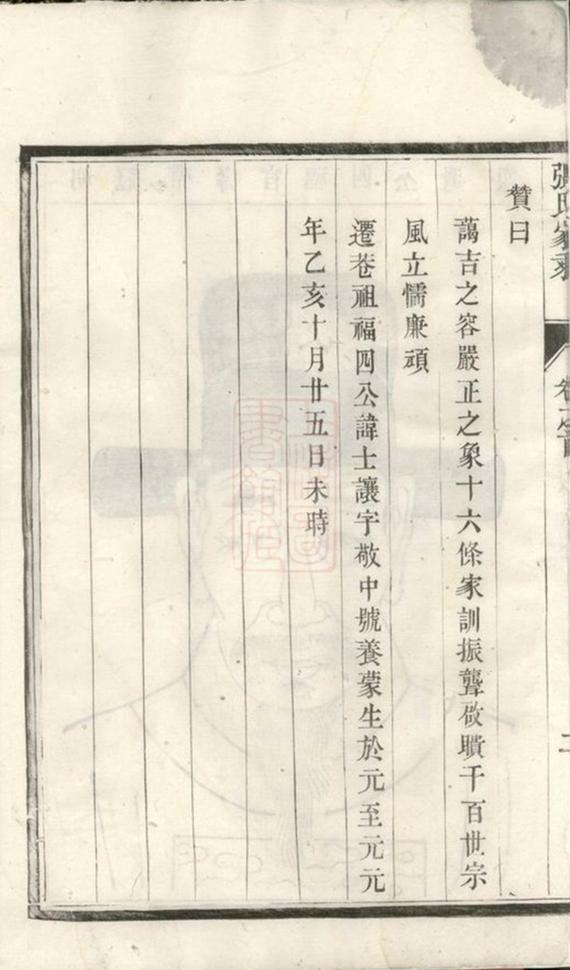 張氏家乘
卷之首
二
贊曰
藹吉之容嚴正之象十六條家訓振聾啟聵千百世宗
風立懦廉頑
遷巷祖福四公諱士讓字敬中號養蒙生於元至元元
年乙亥十月廿五日未時